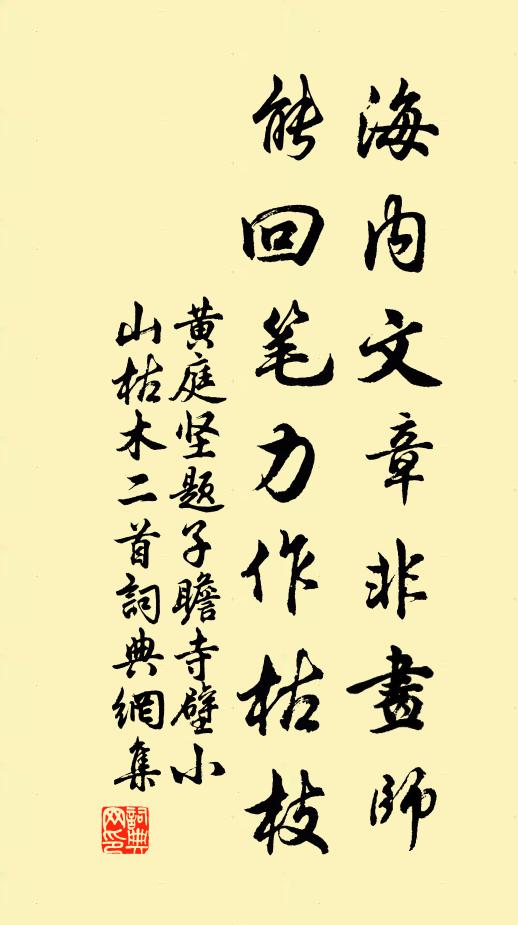 海内文章非畫師
能回笔力作枯枝
黄庭坚题子瞻寺壁小
山枯木二首詞典網集
詞典
网印